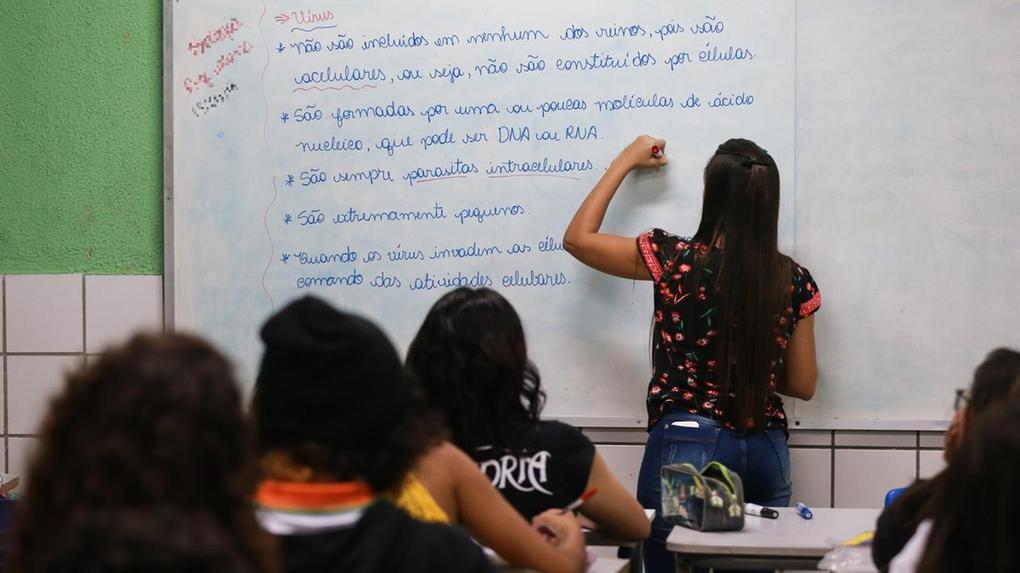 ⇒ Vírus
* não são incluídos em nenhum dos reinos, pois são
acelulares, ou seja, não são constituídos por células.
* São formadas por uma ou poucas moléculas de ácido
nucleico, que pode ser DNA ou RNA.
* São sempre parasitas intracelulares.
* São extremamente pequenos.
* Quando os vírus invadem as célu
comando das atividades celulares.
DRIA